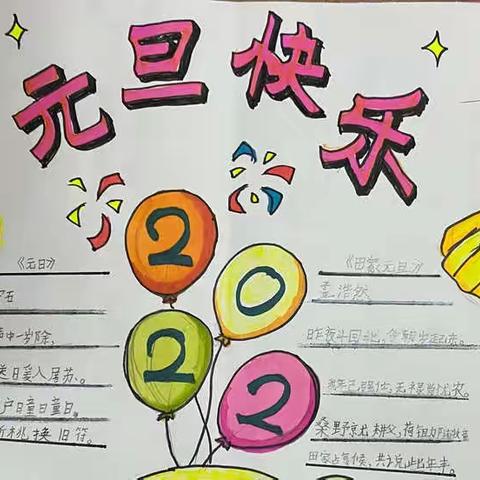 元旦快乐
2
0
2
2
《元日》
王安石
声中一岁除,
送日暖入屠苏。
户曈曈日
新桃换旧符。
《田家元旦》
孟浩然
昨夜斗回北,今朝岁起东。
我年已强仕,无禄尚忧农。
桑野就耕父,荷锄随牧童
田家占气候,共说此年丰。